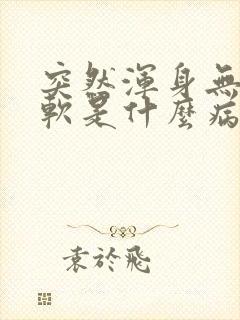 突然渾身無
軟是什麼病
袁於飛